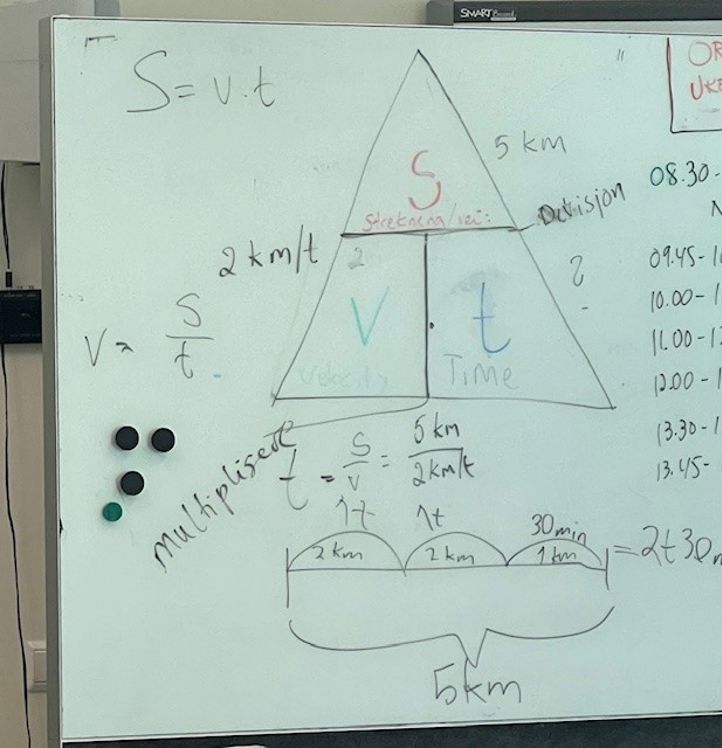 SMART
S = v.t
OR
UKE
5 km
S
Strekning/vei:
Divisjon
08.30-
N
2 km/t
2
?
09.45-1
V
t
10.00-1
v = S/t
11.00-1
Velocity
Time
12.00-1
Multiplisere
t = S/v = 5 km/2 km/t
13.30-1
13.45-
1t 1t 30 min
2 km 2 km 1 km = 2t 30 m
5 km